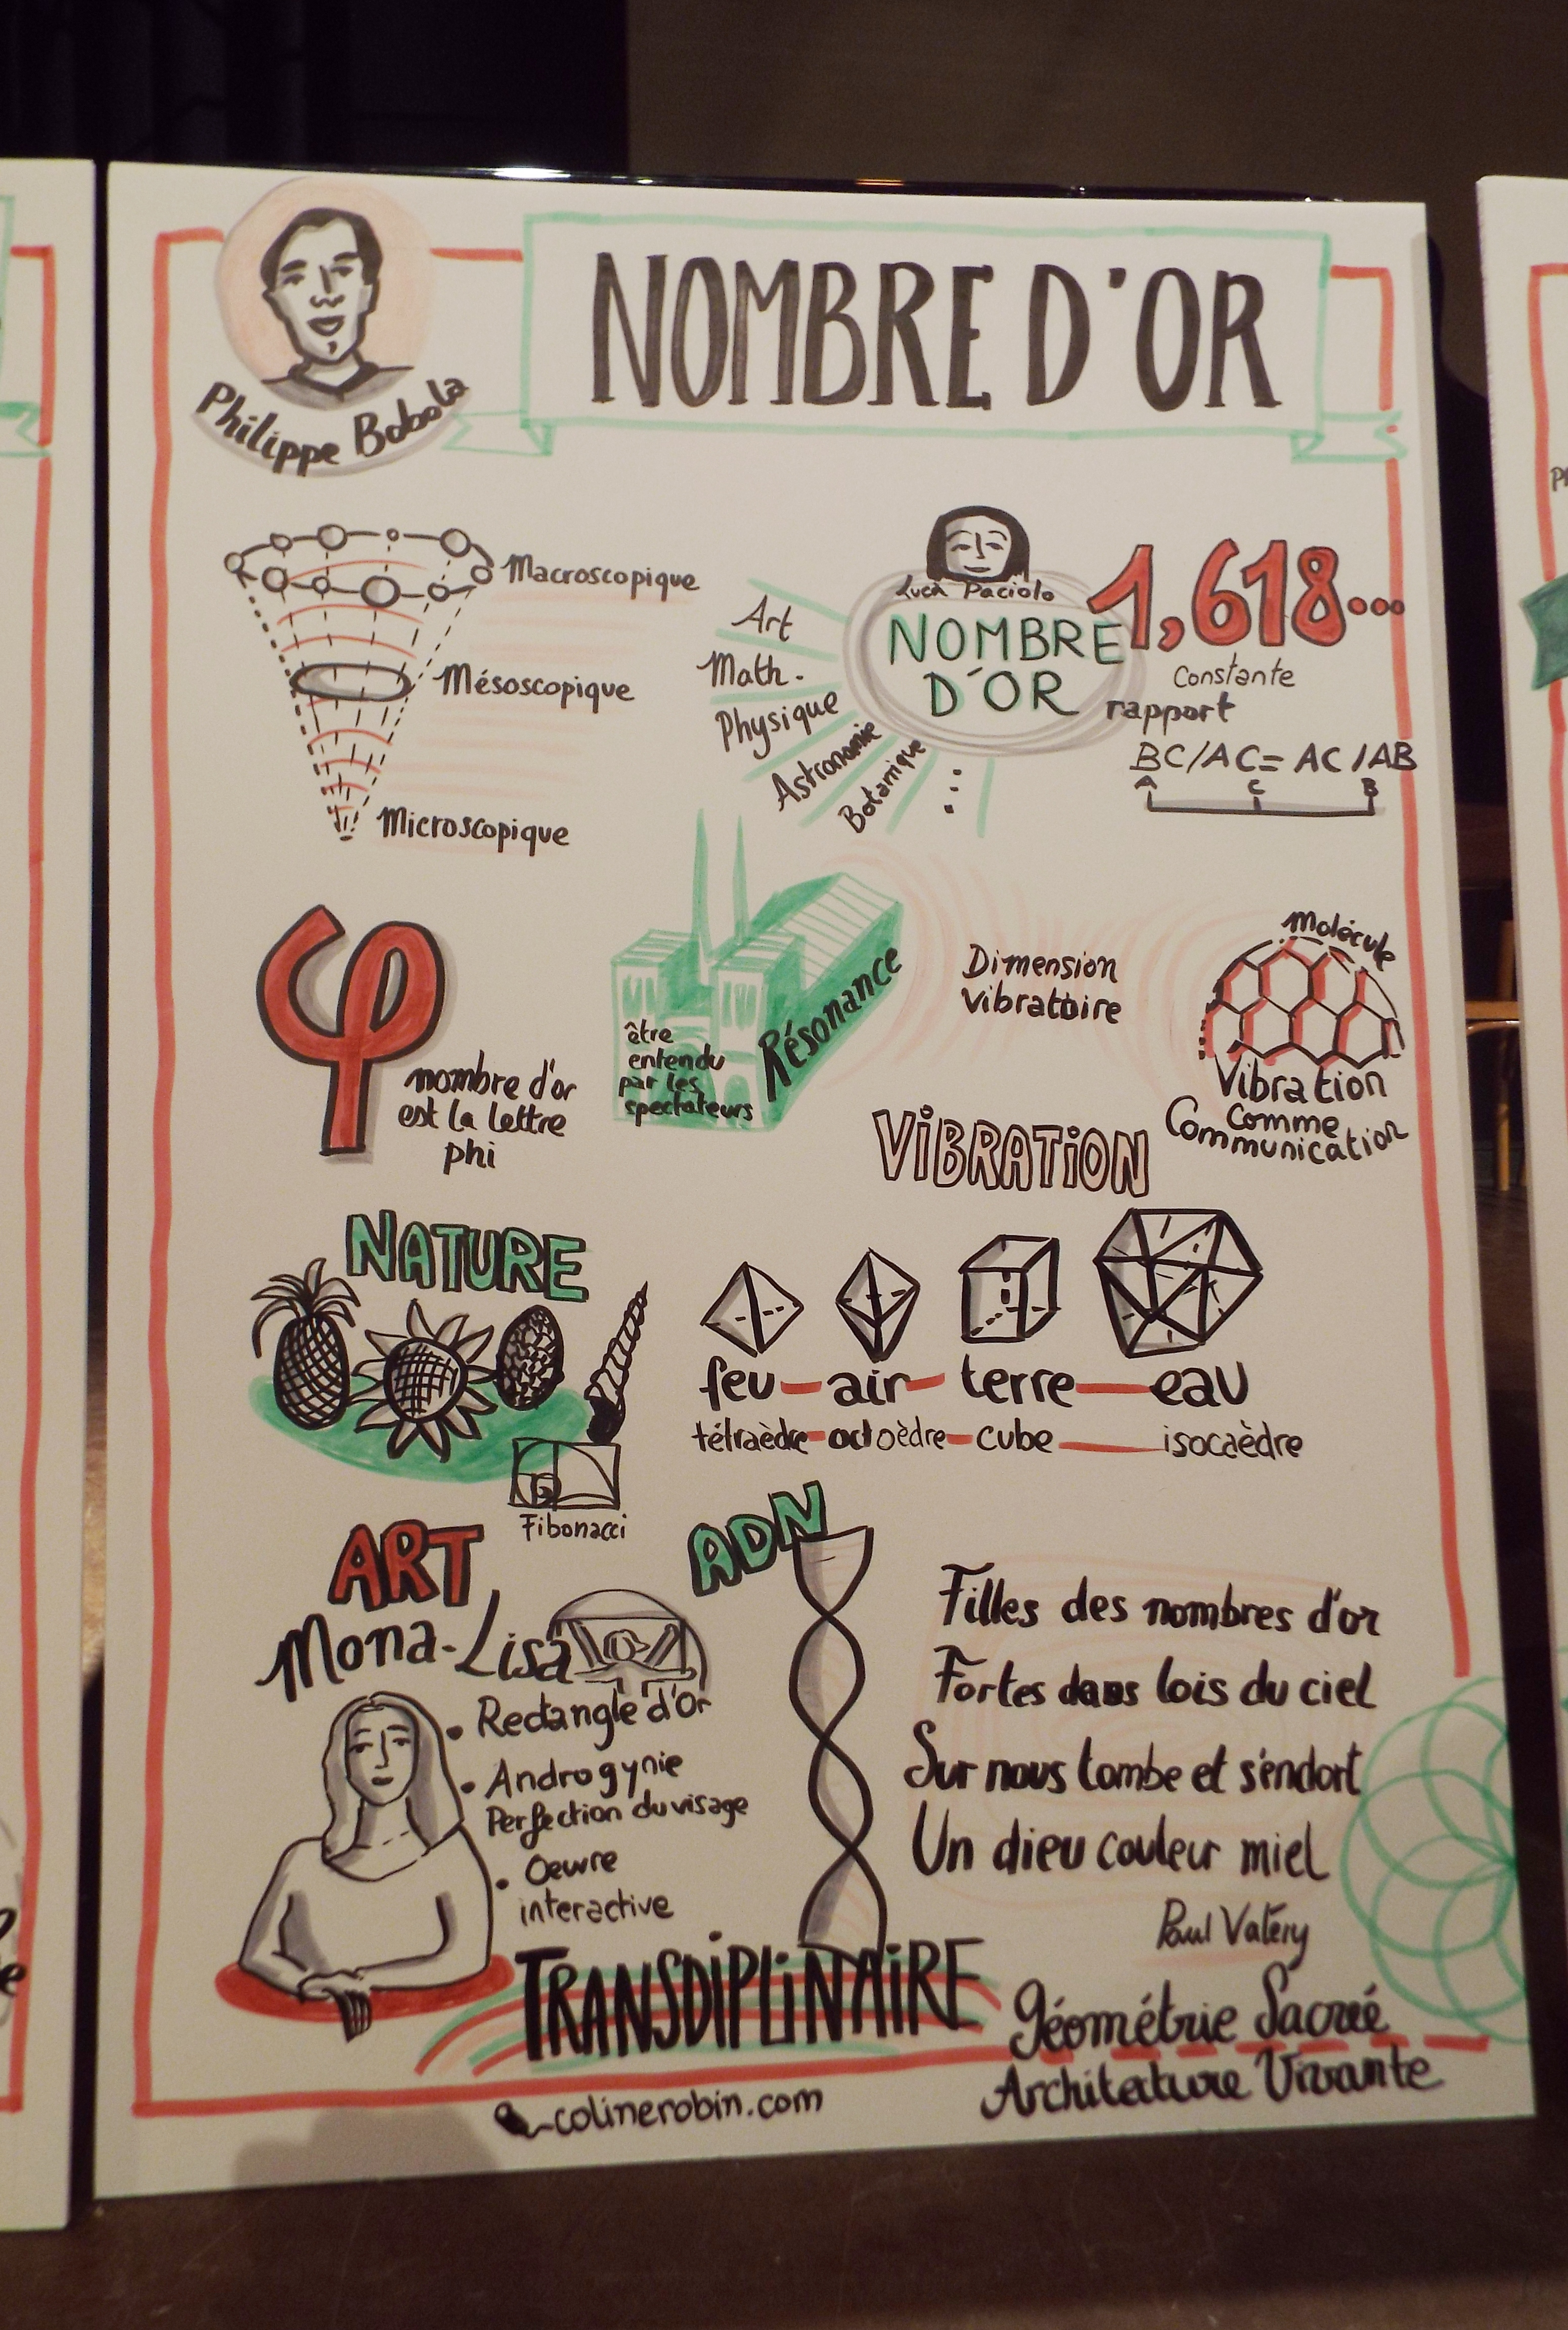 NOMBRE D'OR
Philippe Bobola
Macroscopique
Mésoscopique
Microscopique
Luca Paciolo
NOMBRE
D'OR
1,618...
Constante
rapport
BC/AC = AC/AB
A C B
Art
Math.
Physique
Astronomie
Botanique
...
φ
nombre d'or
est la lettre
phi
être
entendu
par les
spectateurs
Résonance
Dimension
vibratoire
Molécule
Vibration
Comme
Communication
VIBRATION
NATURE
Fibonacci
feu - air - terre - eau
tétraèdre - octoèdre - cube - isocaèdre
ART
Mona-Lisa
• Rectangle d'Or
• Androgynie
Perfection du visage
• Oeuvre
interactive
ADN
Filles des nombres d'or
Fortes dans lois du ciel
Sur nous tombe et s'endort
Un dieu couleur miel
Paul Valéry
TRANSDIPLINAIRE
Géométrie Sacrée
Architecture Vivante
colinerobin.com